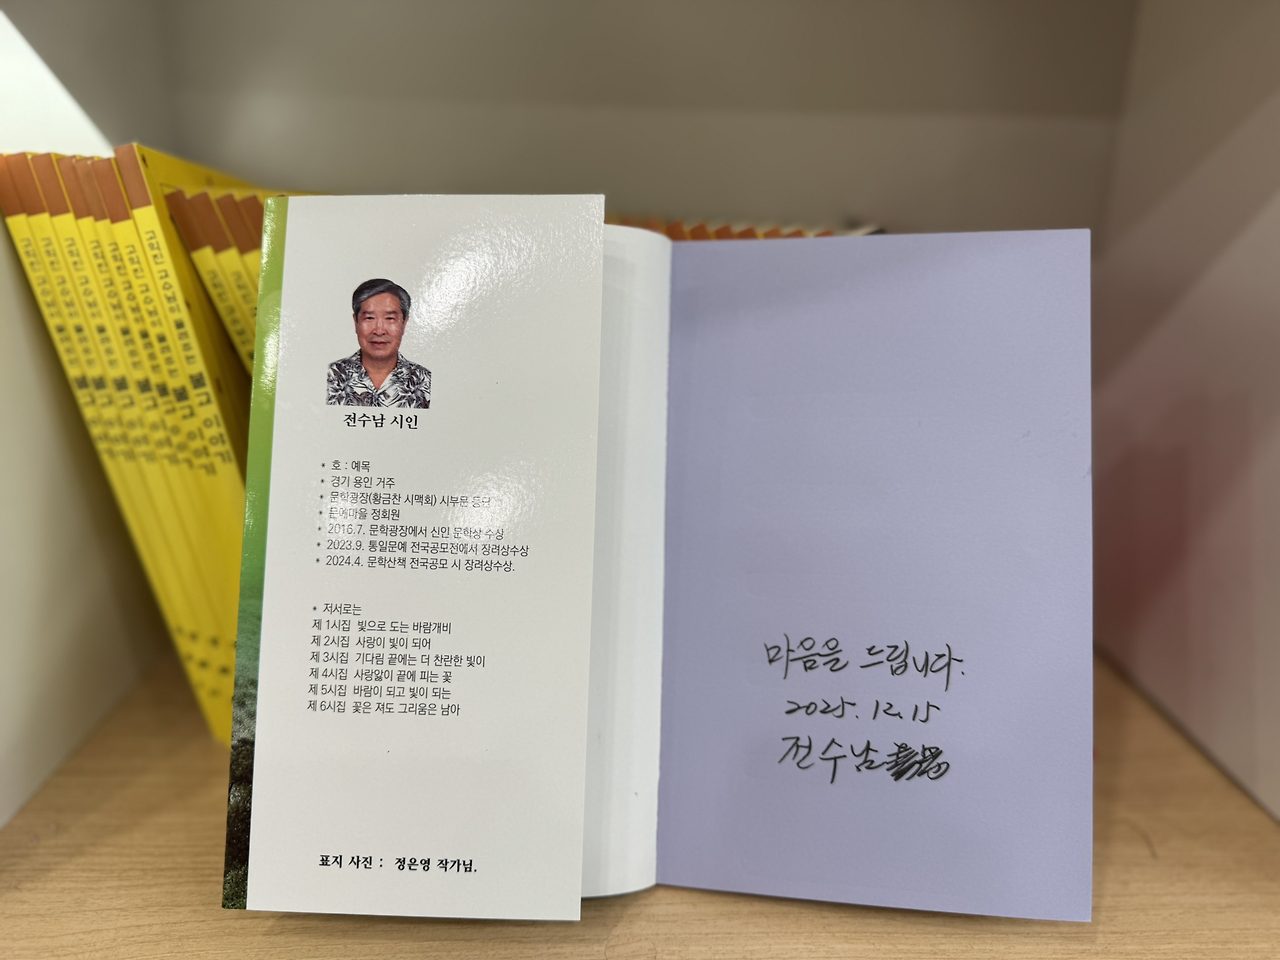 전수남 시인
* 호 : 예목
* 경기 용인 거주
* 문학광장(황금찬 시맥회) 시부문 등단
* 문예마을 정회원
* 2016.7. 문학광장에서 신인 문학상 수상
* 2023.9. 통일문예 전국공모전에서 장려상수상
* 2024.4. 문학산책 전국공모 시 장려상수상.
* 저서로는
제 1시집 빛으로 도는 바람개비
제 2시집 사랑이 빛이 되어
제 3시집 기다림 끝에는 더 찬란한 빛이
제 4시집 사랑앓이 끝에 피는 꽃
제 5시집 바람이 되고 빛이 되는
제 6시집 꽃은 져도 그리움은 남아
표지 사진 : 정은영 작가님.
마음을 드립니다.
2025. 12. 15
전수남